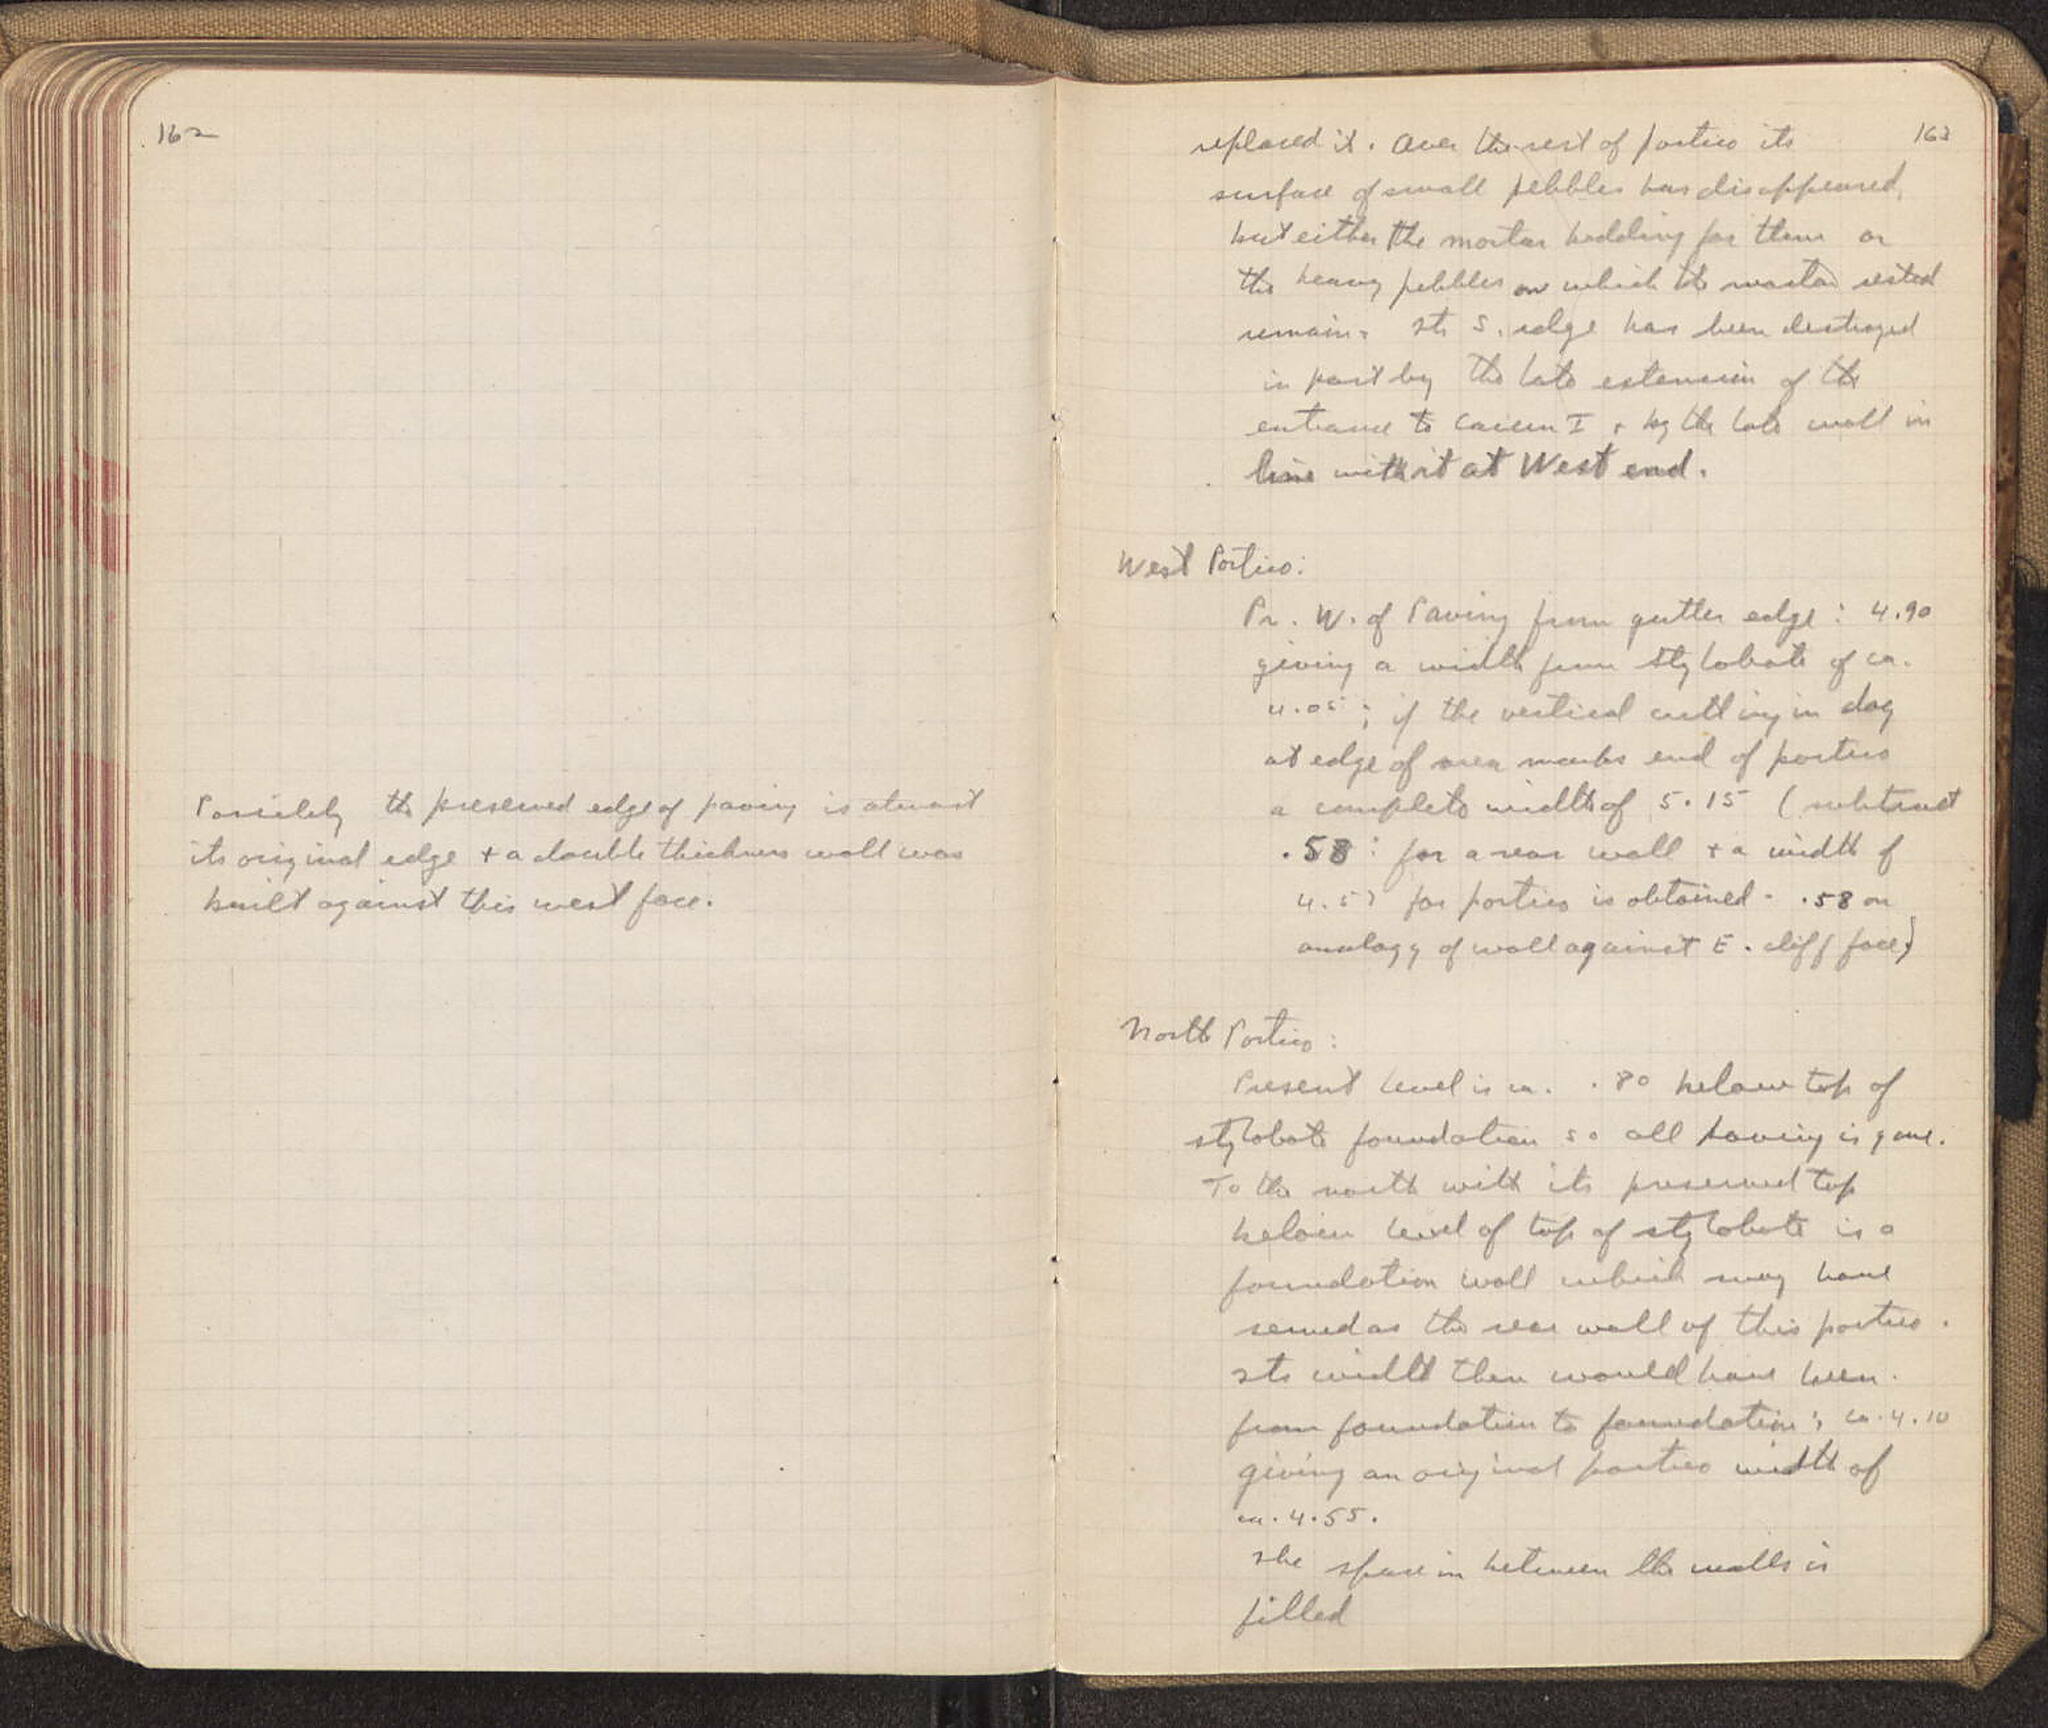 162
Possibly the preserved edge of paving is almost
its original edge + a double thickness wall was
built against this west face.
163
replaced it. Over the rest of portico its
surface of small pebbles has disappeared,
but either the mortar bedding for them or
the heavy pebbles on which the mortar rested
remain. Its S. edge has been destroyed
in part by the late extension of the
entrance to Cavern I + by the late wall in
line with it at West end.
West Portico:
Pr. W. of Paving from gutter edge: 4.90
giving a width from stylobate of ca.
4.05; if the vertical cutting in clay
at edge of area marks end of portico
a complete width of 5.15 (subtract
.58: for a rear wall + a width of
4.57 for portico is obtained - .58 on
analogy of wall against E. cliff face)
North Portico:
Present level is ca. .80 below top of
stylobate foundation so all paving is gone.
To the north with its preserved top
below level of top of stylobate is a
foundation wall which may have
served as the rear wall of this portico.
Its width then would have been
from foundation to foundation: ca. 4.10
giving an original portico width of
ca. 4.55.
The space in between the walls is
filled